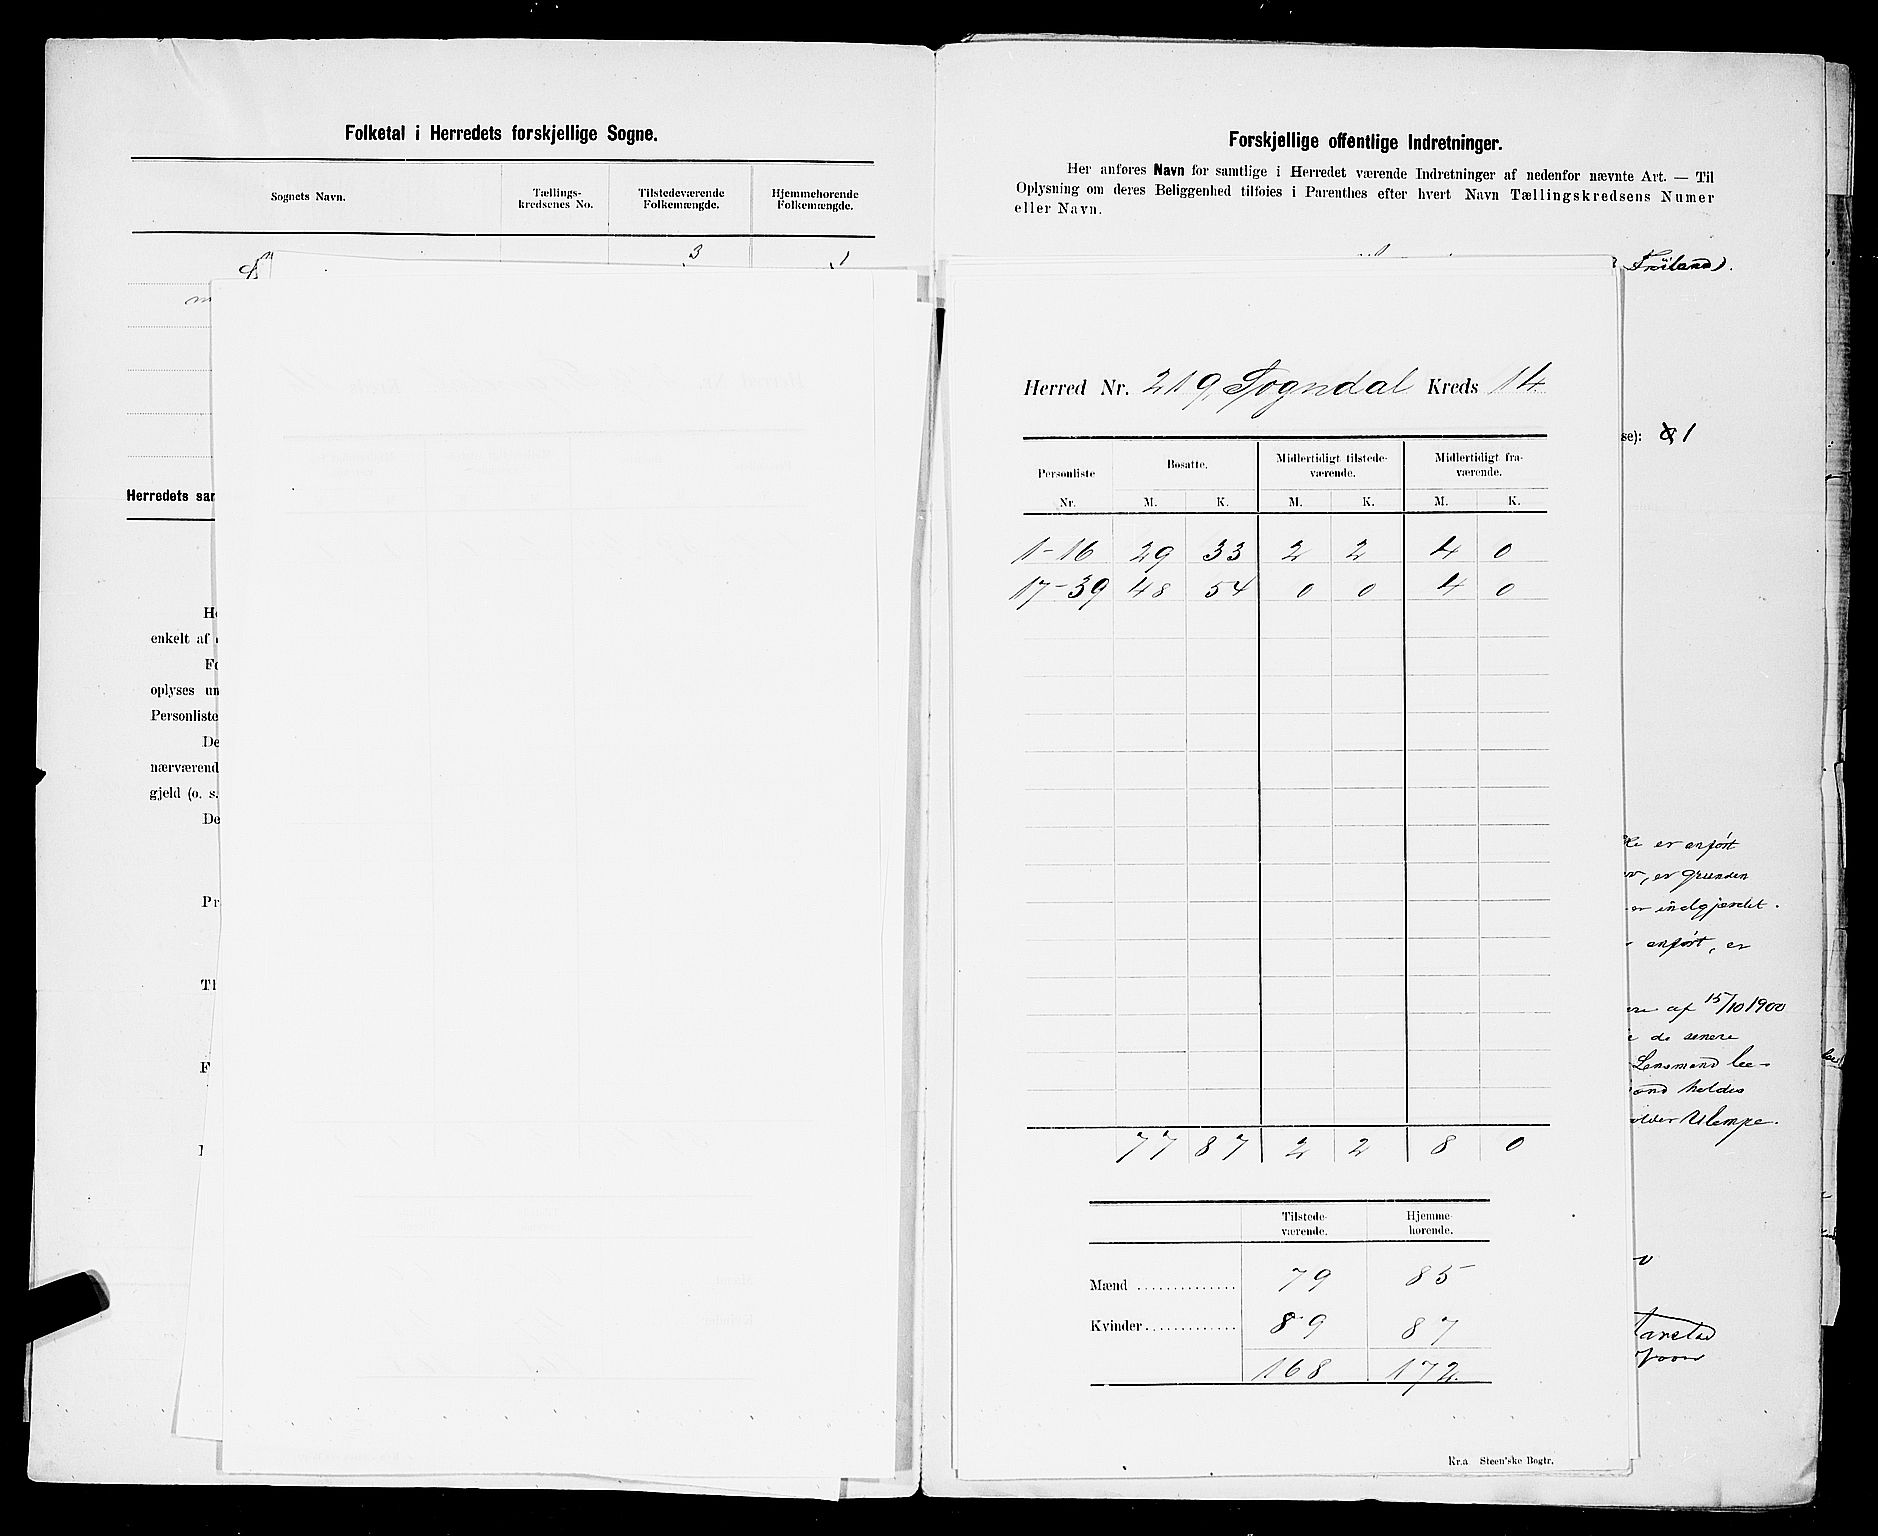 Folketal i Herredets forskjellige Sogne.
Sognets Navn.
Tællings-
kredsenes No.
Tilstedeværende
Folkemængde.
Hjemmehorende
Folkemængde.
3
1
Herredets
enkelt af
oplyses
Personliste
De
nærværend
gjeld (o. s.
De
Forskjellige offentlige Indretninger.
Her anføres Navn for samtlige i Herredet værende Indretninger af nedenfor nævnte Art. — Til
Oplysning om deres Beliggenhed tilføies i Parenthes efter hvert Navn Tællingskredsens Numer
eller Navn.
Frøiland).
se): 1
Herred Nr. 219, Sogndal Kreds 14.
Personliste Bosatte. Midlertidigt tilstede-
værende. Midlertidigt fra-
værende.
Nr. M. K. M. K. M. K.
1-16 29 33 2 2 4 0
17-39 48 54 0 0 4 0
77 87 2 2 8 0
Tilstede-
værende. Hjemme-
hørende.
Mænd .............. 79 85
Kvinder............. 89 87
168 172
Kr.a Steen'ske Bogtr.
er anført
er grunden
er indgjærdet.
anført, er
af 15/10 1900
de senere
Lensmand
holdes
Ulempe.